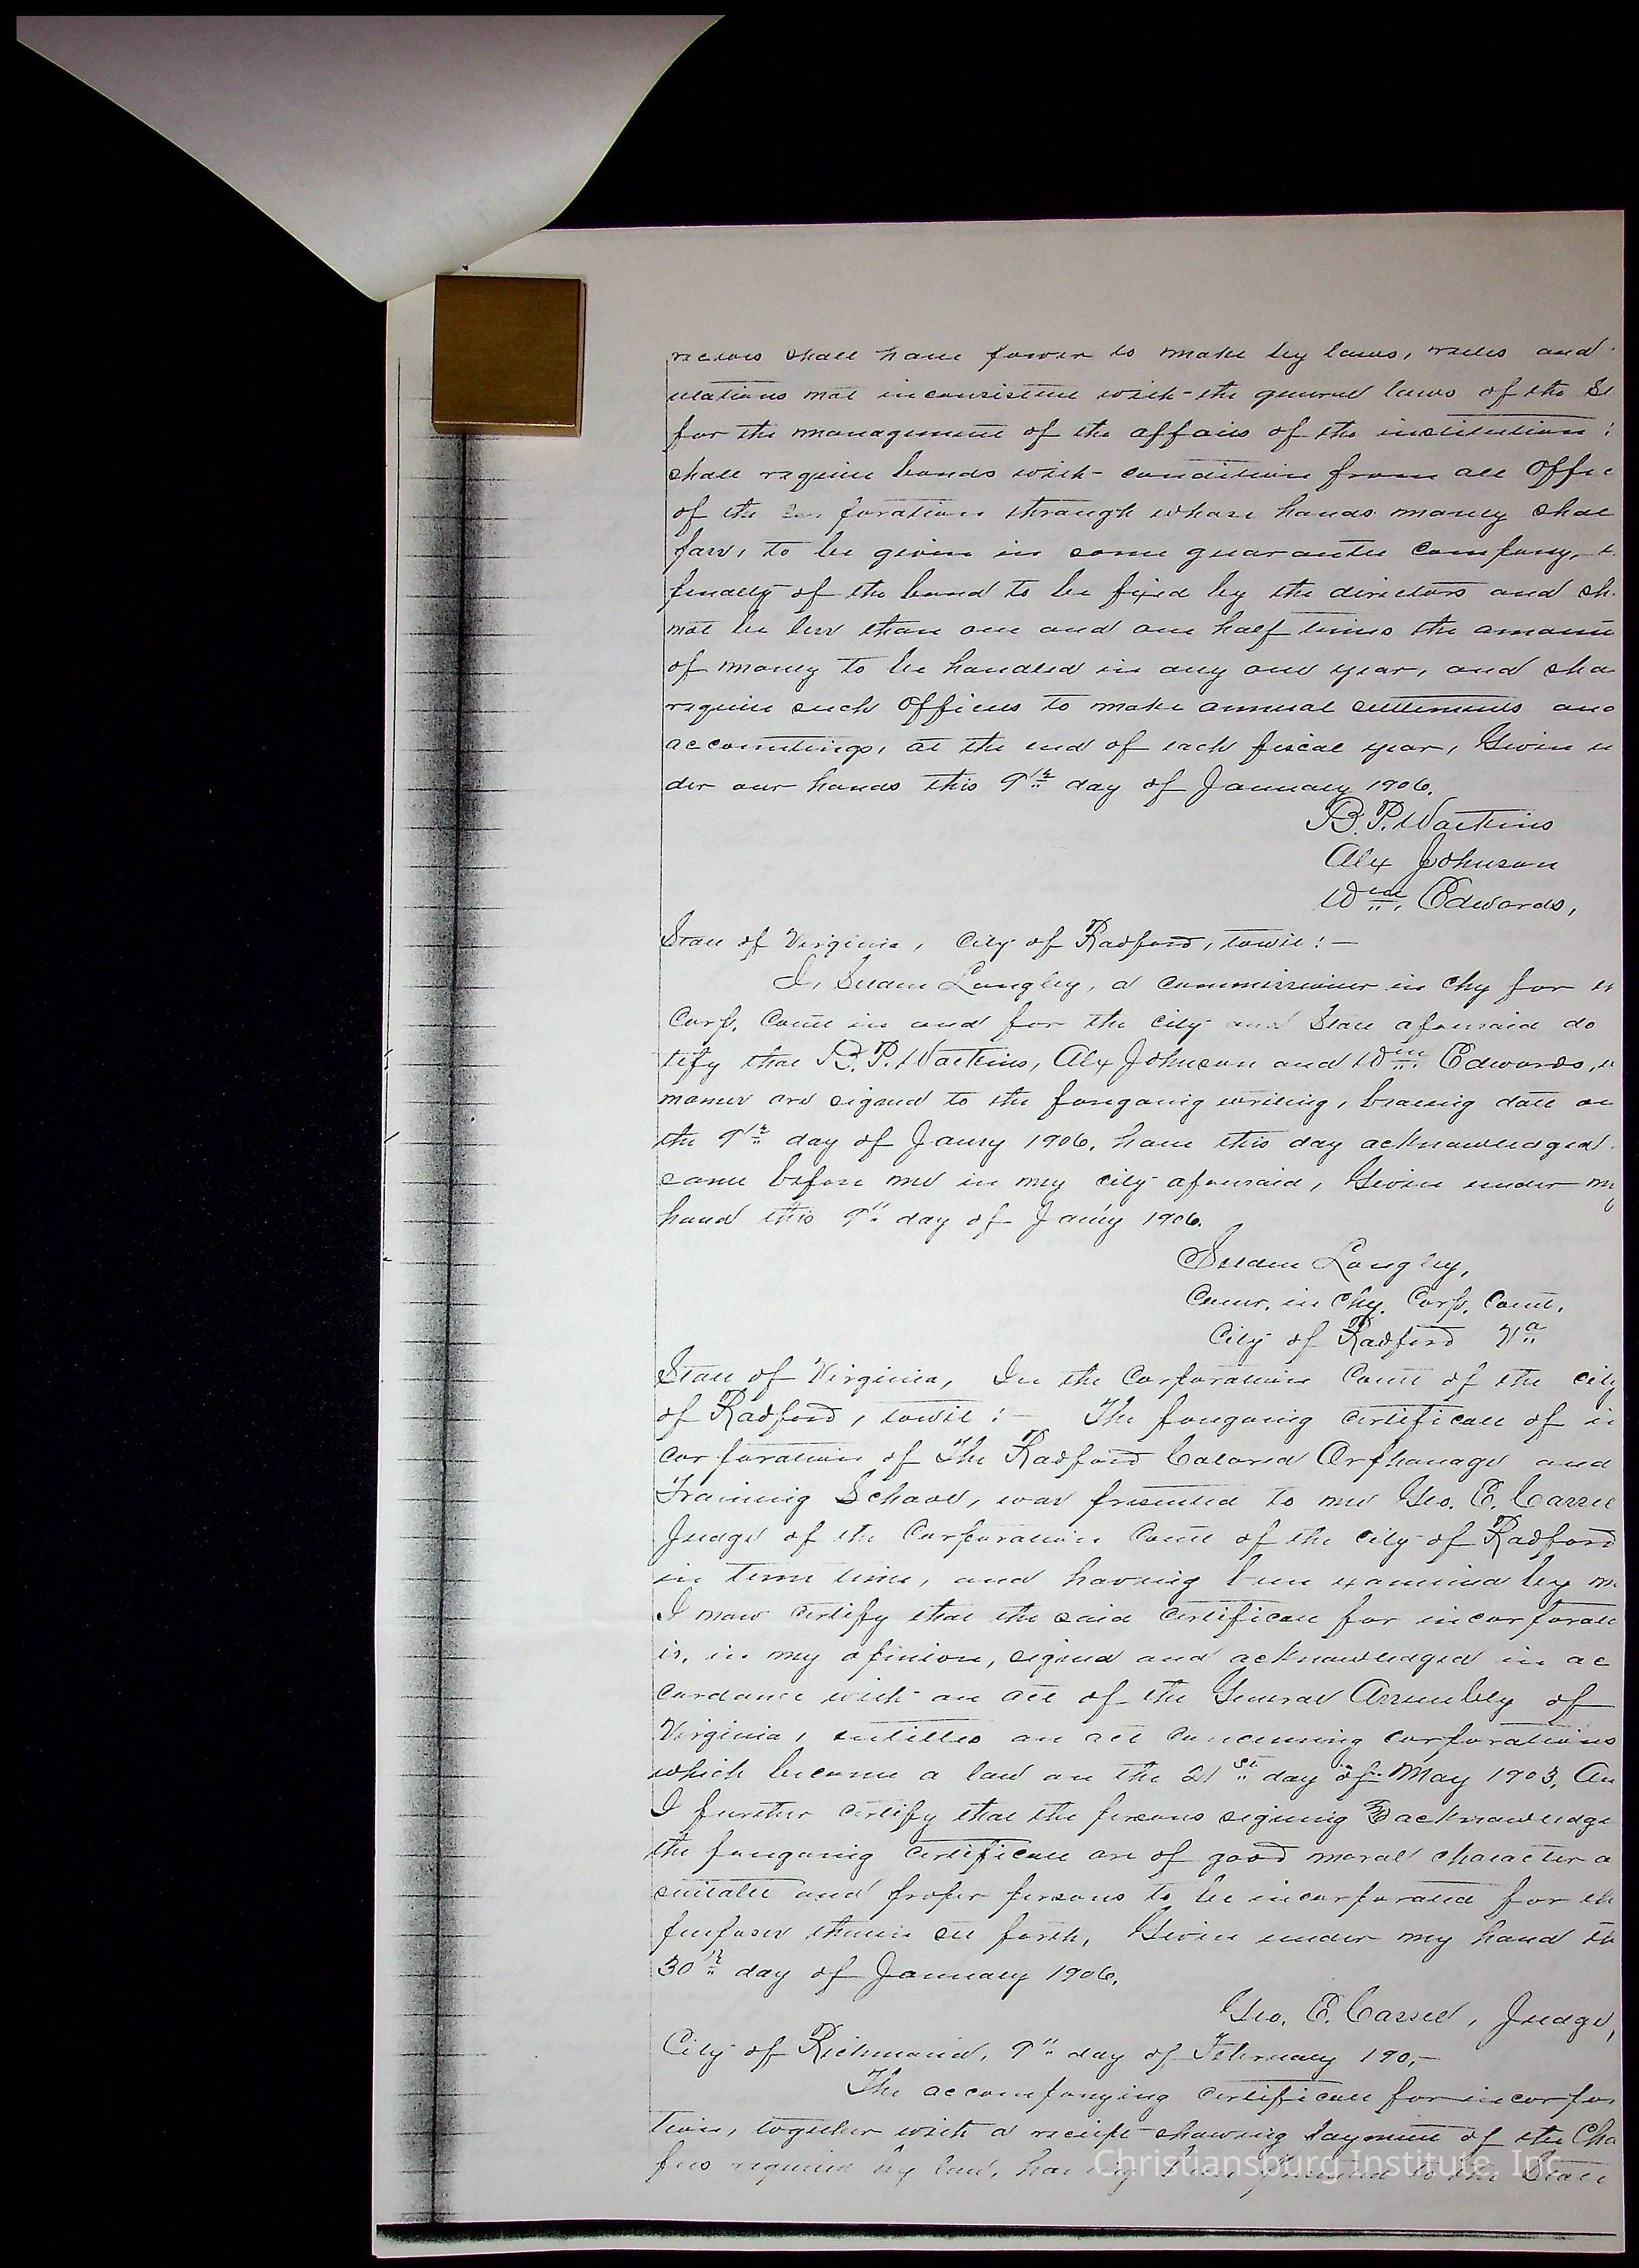 rectors shall have power to make by laws, rules and
ulations not inconsistent with the general laws of the St
for the management of the affairs of the institution:
shall require bonds with condition from all Offic
of the poration through whose hands money shal
pass, to be given in some guarantee company,
penalty of the bond to be fixed by the directors and sh
not be less than one and one half times the amount
of money to be handled in any one year, and sha
require such Officers to make annual settlements and
accountings, at the end of each fiscal year, Given u
der our hands this 9th day of January 1906.
B. P. Watkins
Alex Johnson
Wm. Edwards,
State of Virginia, City of Radford, towit:—
I, Langley, a commissioner in chy for
Corp. Court in and for the city and State aforesaid do
tify that B. P. Watkins, Alex Johnson and Wm. Edwards,
names are signed to the foregoing writing, bearing date on
the 9th day of Janry 1906, have this day acknowledged
same before me in my city aforesaid, Given under my
hand this 9" day of Jan'y 1906.
Langley,
Comr. in Chy. Corp. Court,
City of Radford Va
State of Virginia, In the Corporation Court of the city
of Radford, towit:— The foregoing certificate of in
corporation of The Radford Colored Orphanage and
Training School, was presented to me Geo. E. Cassel
Judge of the Corporation Court of the city of Radford
in term time, and having been examined by me
I now certify that the said certificate for incorporati
is, in my opinion, signed and acknowledged in ac
cordance with an act of the General Assembly of
Virginia, entitled an act concerning corporations
which became a law on the 21st day of May 1903, An
I further certify that the persons signing & acknowledg
the foregoing certificate are of good moral character a
suitable and proper persons to be incorporated for th
purposes therein set forth, Given under my hand th
30th day of January 1906.
Geo. E. Cassel, Judge,
City of Richmond, 9" day of February 190,—
The accompanying certificate for incorpor
tion, together with a receipt showing payment of the Cha
fees required by law, having been presented to the State
Christiansburg Institute, Inc